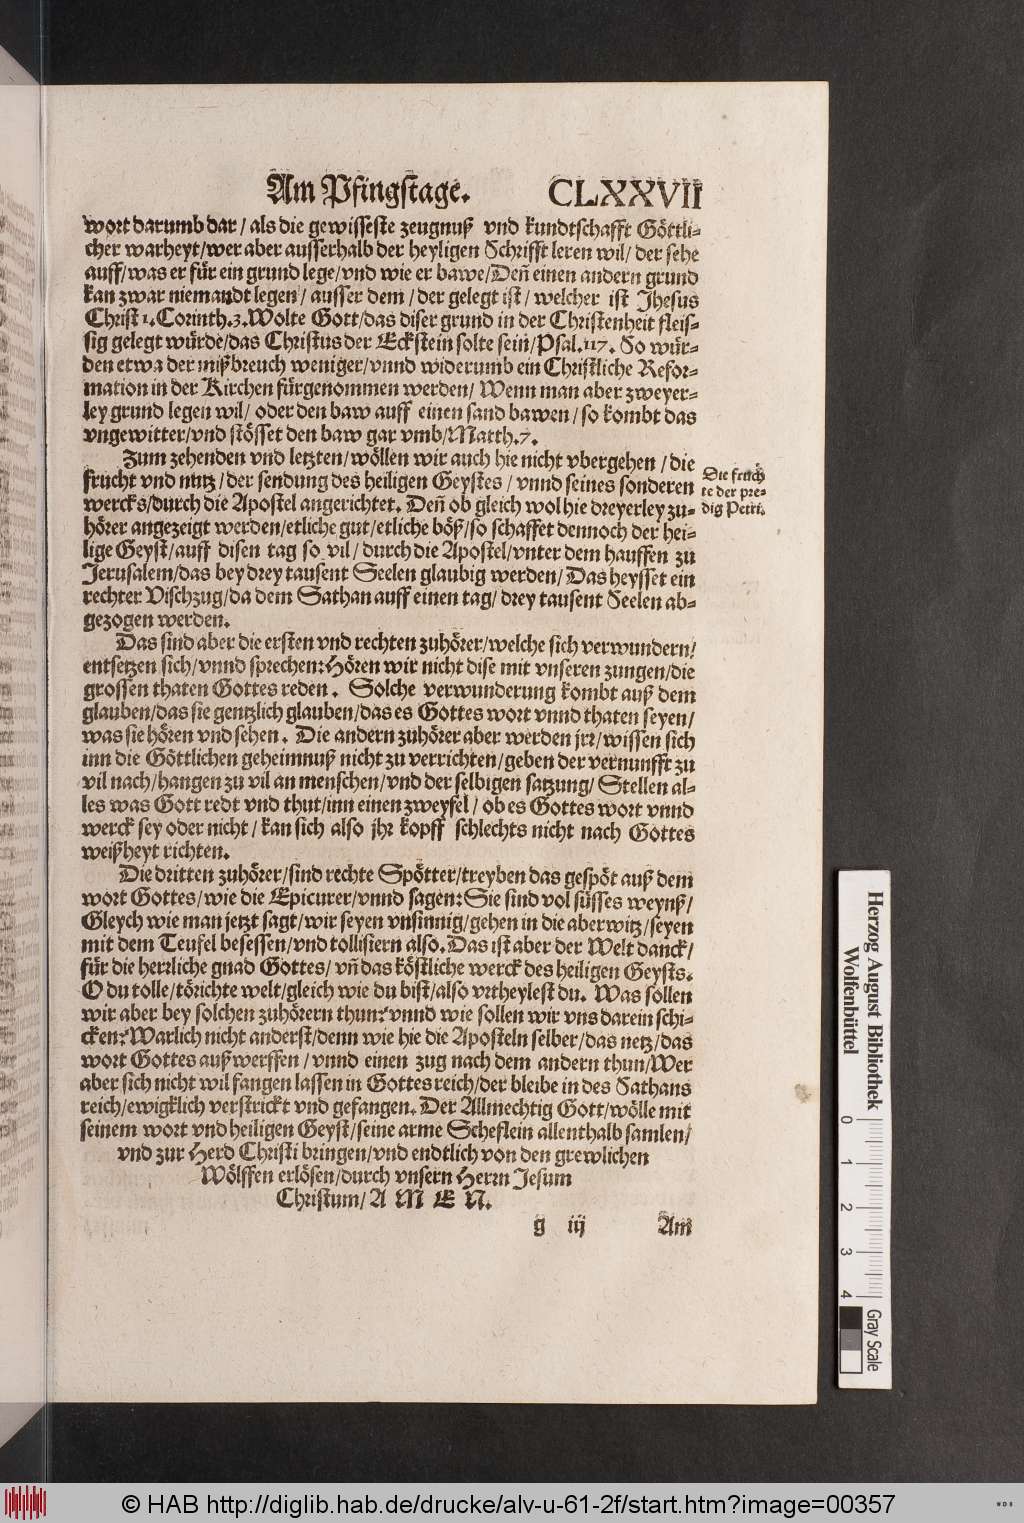 Am Pfingstage. CLXXVII
wort darumb dar / als die gewisseste zeugnuß vnd kundtschafft Göttli-
cher warheyt/wer aber ausserhalb der heyligen Schrifft leren wil/ der sehe
auff/was er für ein grund lege/vnd wie er bawe/Deñ einen andern grund
kan zwar niemandt legen/ ausser dem / der gelegt ist / welcher ist Jhesus
Christ 1. Corinth.3. Wolte Gott/das diser grund in der Christenheit fleis-
sig gelegt würde/das Christus der Eckstein solte sein/Psal.117. So wür-
den etwa der mißbreuch weniger/vnnd widerumb ein Christliche Refor-
mation in der Kirchen fürgenommen werden/ Wenn man aber zweyer-
ley grund legen wil/ oder den baw auff einen sand bawen/so kombt das
vngewitter/vnd stösset den baw gar vmb/Matth.7.
Zum zehenden vnd letzten/wöllen wir auch hie nicht vbergehen /die
frucht vnd nutz/der sendung des heiligen Geystes/ vnnd seines sonderen
wercks/durch die Apostel angerichtet. Deñ ob gleich wol hie dreyerley zu-
hörer angezeigt werden/etliche gut/etliche böß/so schaffet dennoch der hei-
lige Geyst/auff disen tag so vil/durch die Apostel/vnter dem hauffen zu
Jerusalem/das bey drey tausent Seelen glaubig werden/ Das heysset ein
rechter Vischzug/da dem Sathan auff einen tag/ drey tausent Seelen ab-
gezogen werden.
Die früch
te der pre-
dig Petri.
Das sind aber die ersten vnd rechten zuhörer/welche sich verwundern/
entsetzen sich/vnnd sprechen: Hören wir nicht dise mit vnseren zungen/die
grossen thaten Gottes reden. Solche verwunderung kombt auß dem
glauben/das sie gentzlich glauben/das es Gottes wort vnnd thaten seyen/
was sie hören vnd sehen. Die andern zuhörer aber werden jrr/wissen sich
inn die Göttlichen geheimnuß nicht zu verrichten/geben der vernunfft zu
vil nach/hangen zu vil an menschen/vnd der selbigen satzung/ Stellen al-
les was Gott redt vnd thut/inn einen zweyfel/ ob es Gottes wort vnnd
werck sey oder nicht/ kan sich also jhr kopff schlechts nicht nach Gottes
weißheyt richten.
Die dritten zuhörer/sind rechte Spötter/treyben das gespöt auß dem
wort Gottes/wie die Epicurer/vnnd sagen: Sie sind vol süsses weynß/
Gleych wie man jetzt sagt/wir seyen vnsinnig/gehen in die aberwitz/seyen
mit dem Teufel besessen/vnd tollisiern also. Das ist aber der Welt danck/
für die herrliche gnad Gottes/ vñ das köstliche werck des heiligen Geysts.
O du tolle/törichte welt/gleich wie du bist/also vrtheylest du. Was sollen
wir aber bey solchen zuhörern thun? vnnd wie sollen wir vns darein schi-
cken? Warlich nicht anderst/denn wie hie die Aposteln selber/das netz/das
wort Gottes außwerffen / vnnd einen zug nach dem andern thun/Wer
aber sich nicht wil fangen lassen in Gottes reich/der bleibe in des Sathans
reich/ewigklich verstrickt vnd gefangen. Der Allmechtig Gott/wölle mit
seinem wort vnd heiligen Geyst/seine arme Scheflein allenthalb samlen/
vnd zur Herd Christi bringen/vnd endtlich von den grewlichen
Wölffen erlösen/durch vnsern Herrn Jesum
Christum/ A M E N.
g iij Am
Herzog August Bibliothek
Wolfenbüttel
0 1 2 3 4
Gray Scale
© HAB http://diglib.hab.de/drucke/alv-u-61-2f/start.htm?image=00357
WDB